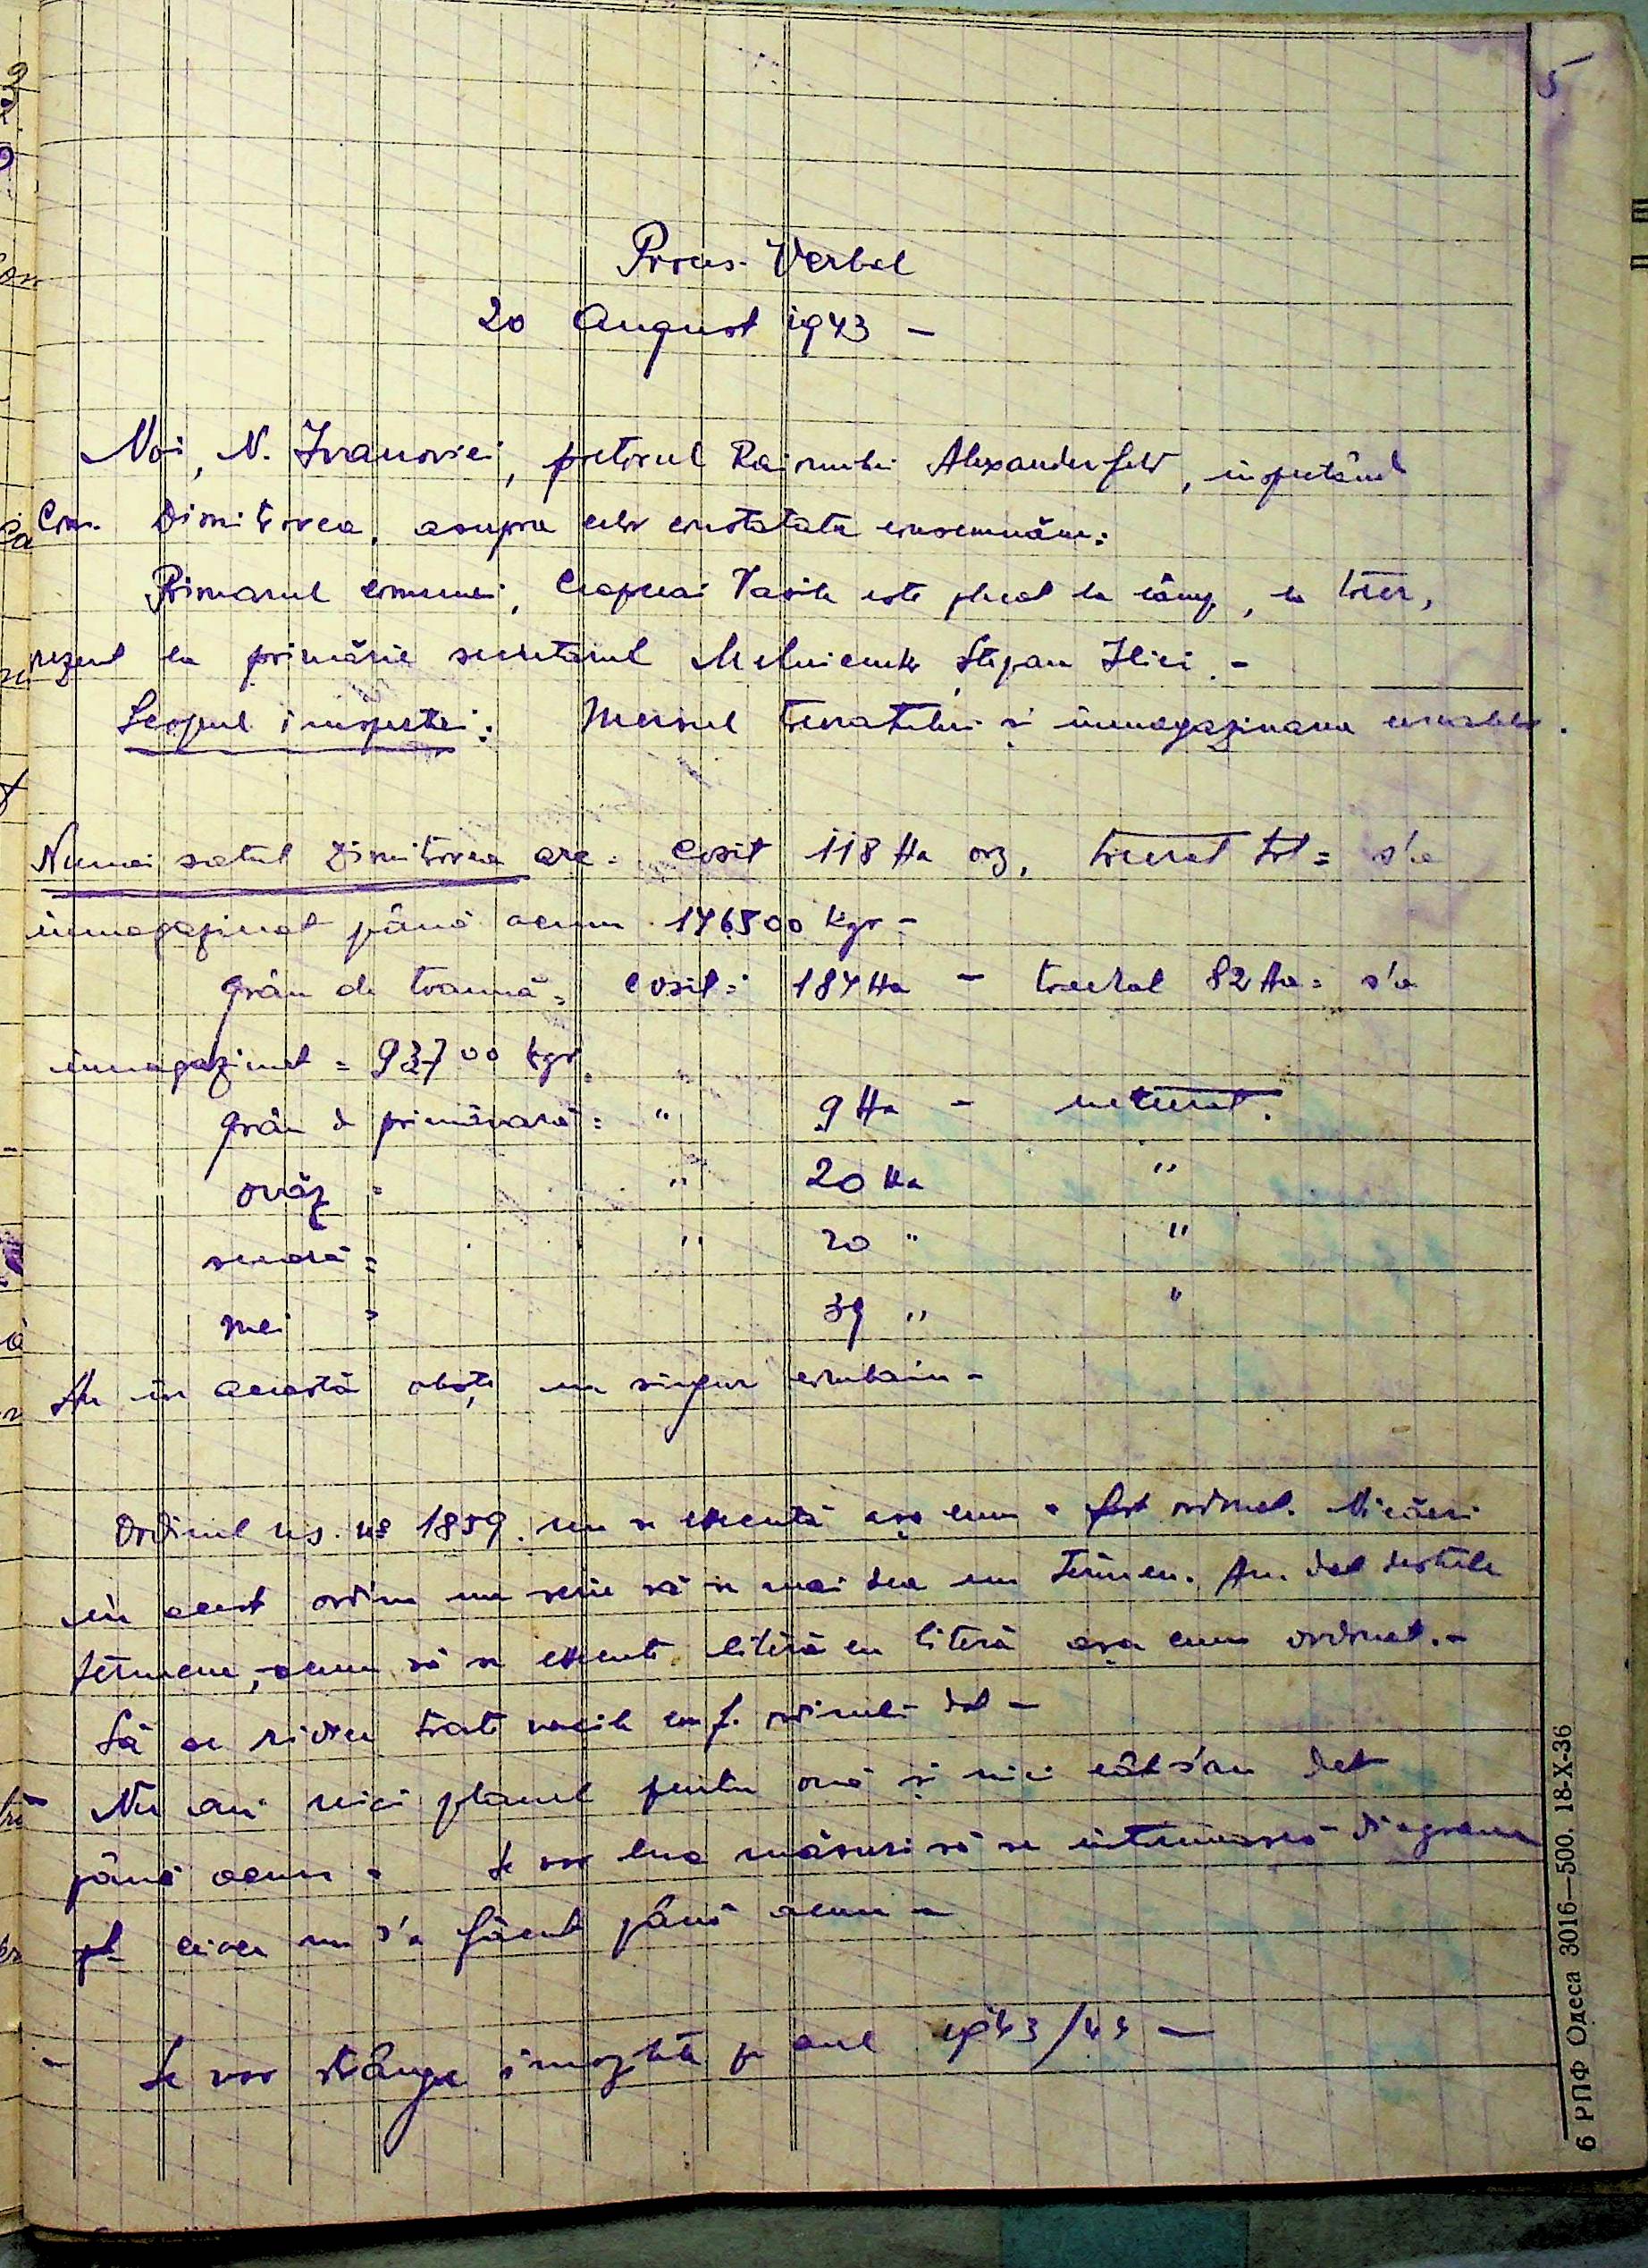 5
Proces-Verbal
20 August 1943 –
Noi, N. Ivanovici, pretorul Raionului Alexanderfeld, inspectând
Com. Dimitrovca, asupra celor constatate consemnăm:
Primarul comunei, Vasile este plecat la câmp, la treer,
prezent la primărie secretarul Melniciuk Stepan Ilici. –
Scopul inspecției: Mersul treeratului și înmagazinarea cerealelor.
Numai satul Dimitrovca are: Cosit 118 Ha orz, treerat tot = s'a
inmagazinat până acum 146500 kgr –
Grâu de toamnă = cosit = 184 Ha – treerat 82 Ha = s'a
inmagazinat = 93700 kgr.
Grâu de primăvară = " 9 Ha – netreerat.
ovăz = " 20 Ha "
secară = " 20 " "
mei = 39 " "
Au în această obște un singur combain –
Ordinul nr. No 1859. nu se execută așa cum a fost ordonat. Nicăeri
în acest ordin nu scrie să se mai dea un termen. Am dat destule
termene, – acum să se execute literă cu literă așa cum ordonat. –
Să se ridice toate vacile conf. ordinului dat –
Nu au nici planul pentru ouă și nici cât s'au dat
până acum – Se vor lua măsuri să se întocmească diagrame
pt. ce nu s'a făcut până acum –
– Se vor strânge impozitele pe anul 1943/44 –
6 РПФ Одеса 3016—500. 18-X-36